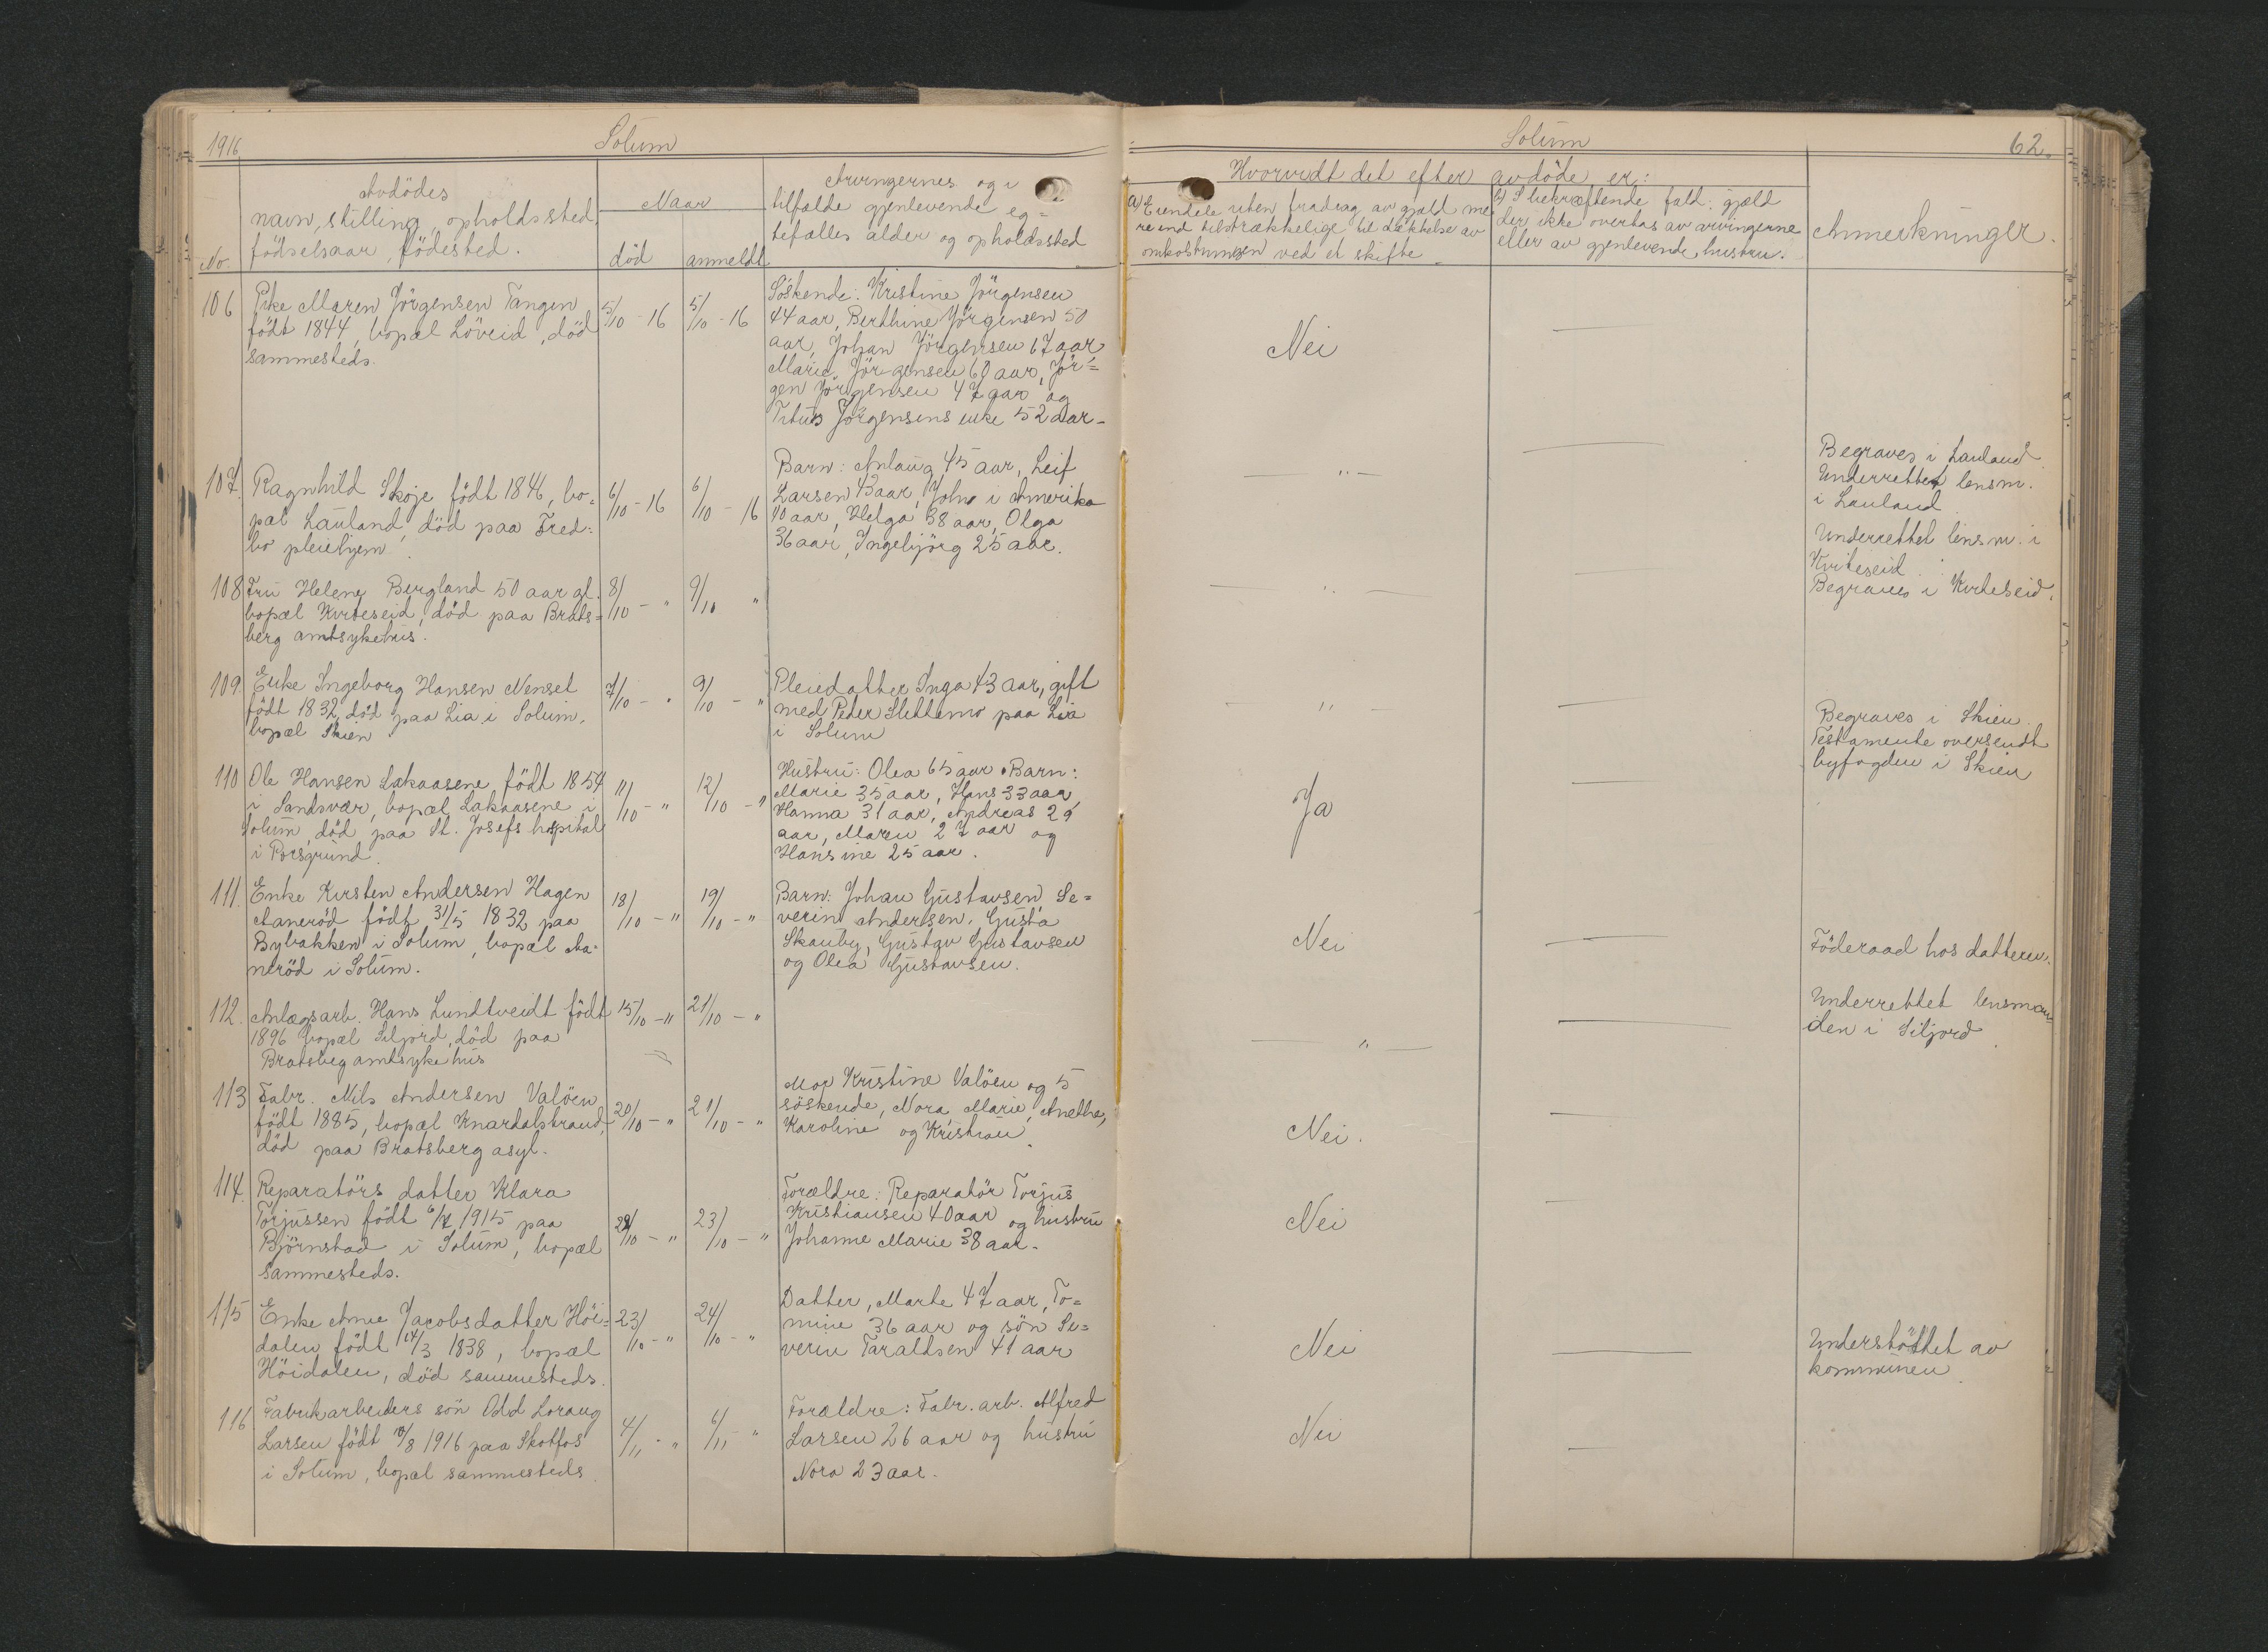 1916
Solum
No.
Avdödes
navn, stilling, opholdssted,
födselsaar, födested.
Naar
död
anmeldt
Arvingernes og i
tilfælde gjenlevende eg=
tefælles alder og opholdssted
106
Pike Maren Jörgensen Tangen
födt 1844, bopæl Löveid, död
sammesteds.
5/10 - 16
5/10 - 16
Söskende: Kristine Jörgensen
44 aar, Berthine Jörgensen 50
aar, Johan Jörgensen 67 aar
Marie Jörgensen 60 aar, Jör=
gen Jörgensen 47 aar og
Titus Jörgensens enke 52 aar -
107.
Ragnhild Skoje födt 1846, bo=
pæl Lauland, död paa Fred=
bo pleiehjem.
6/10 - 16
6/10 - 16
Barn: Anlaug 45 aar, Leif
Larsen 43 aar, John i Amerika
40 aar, Helga 38 aar, Olga
36 aar, Ingebjörg 25 aar.
108
Fru Helene Bergland 50 aar gl.
bopæl Kviteseid, död paa Brats=
berg amtsykehus.
8/10 - "
9/10 "
109.
Enke Ingeborg Hansen Nenset
födt 1832, död paa Lia i Solum,
bopæl Skien
7/10 - "
9/10 - "
Pleiedatter Inga 43 aar, gift
med Peder Slettemo paa Lia
i Solum
110
Ole Hansen Lakaasene födt 1854
i Sandsvær, bopæl Lakaasene i
Solum, död paa St. Josefs hospital
i Porsgrund.
11/10 - "
12/10 - "
Hustru: Olea 65 aar. Barn:
Marie 35 aar, Hans 33 aar,
Hanna 31 aar, Andreas 29
aar, Maren 27 aar og
Hansine 25 aar.
111.
Enke Kirsten Andersen Hagen
Aaneröd födt 31/5 1832 paa
Bybakken i Solum, bopæl Aa=
neröd i Solum.
18/10 - "
19/10 - "
Barn: Johan Gustavsen, Se=
verin Andersen, Gusta
Skauby, Gustav Gustavsen
og Olea Gustavsen.
112.
Anlægsarb. Hans Lundtveidt födt
1896 bopæl Siljord, död paa
Bratsbeg amtsykehus
15/10 - "
21/10 - "
113
Fabr. Nils Andersen Valöen
födt 1885, bopæl Knardalstrand,
död paa Bratsberg asyl.
20/10 - "
21/10 - "
Mor Kristine Valöen og 5
söskende, Nora, Marie, Anethe,
Karoline og Kristian.
114.
Reparatörs datter Klara
Torjussen födt 6/7 1915 paa
Björnstad i Solum, bopæl
sammesteds.
/10 - "
23/10 - "
Forældre: Reparatör Torjus
Kristiansen 40 aar og hustru
Johanne Marie 38 aar.
115
Enke Anne Jacobsdatter Höi=
dalen, födt 14/3 1838, bopæl
Höidalen, död sammesteds.
23/10 - "
24/10 - "
Datter, Marte 47 aar, To=
mine 36 aar og sön Se=
verin Taraldsen 41 aar
116
Fabrikarbeiders sön Odd Loraug
Larsen födt /8 1916 paa Skotfos
i Solum, bopæl sammesteds.
4/11 - "
6/11 "
Forældre: Fabr. arb. Alfred
Larsen 26 aar og hustru
Nora 23 aar.
Solum
62.
Hvorvidt det efter avdöde er:
a) Eiendele uten fradrag av gjæld me
re end tilstrækkelige til dækkelse av
omkostningen ved et skifte
b) I bekræftende fald: gjæld
der ikke overtas av arvingerne
eller av gjenlevende hustru.
Anmerkninger.
Nei
" -
Begraves i Lauland.
Underrettet lensm.
i Lauland.
Underrettet lensm. i
Kviteseid.
Begraves i Kviteseid.
"
"
Begraves i Skien.
Testamente oversendt
byfogden i Skien
Ja
Nei
Föderaad hos datteren.
"
Underrettet lensman=
den i Siljord.
Nei.
Nei
Nei
Understöttet av
kommunen.
Nei